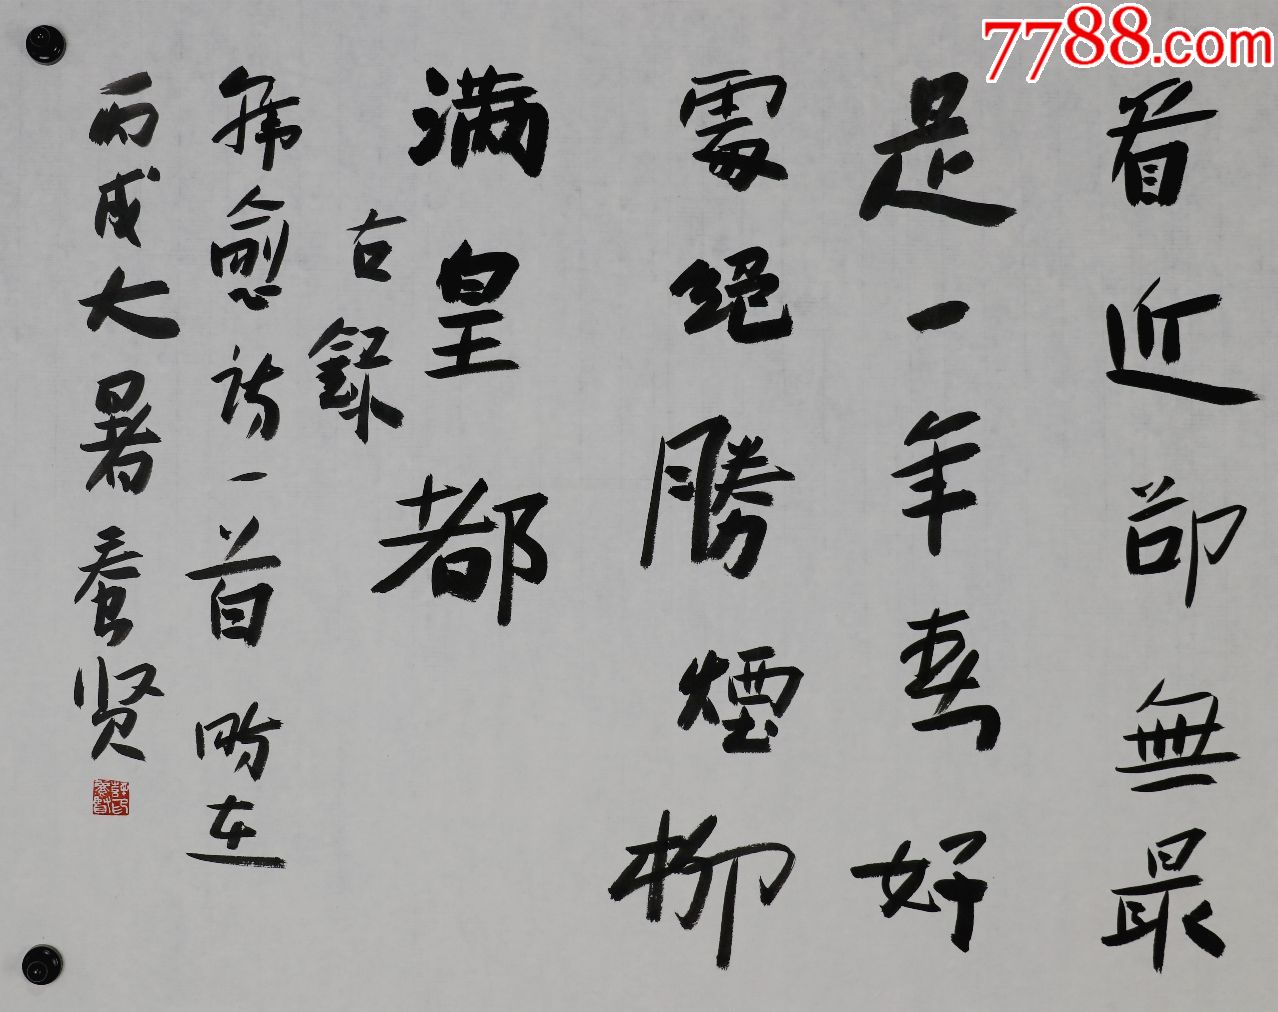 7788.com
看近卻無最
是一年春好
處絕勝煙柳
满皇都
右錄
韓愈詩一首時在
丙戌大暑贤